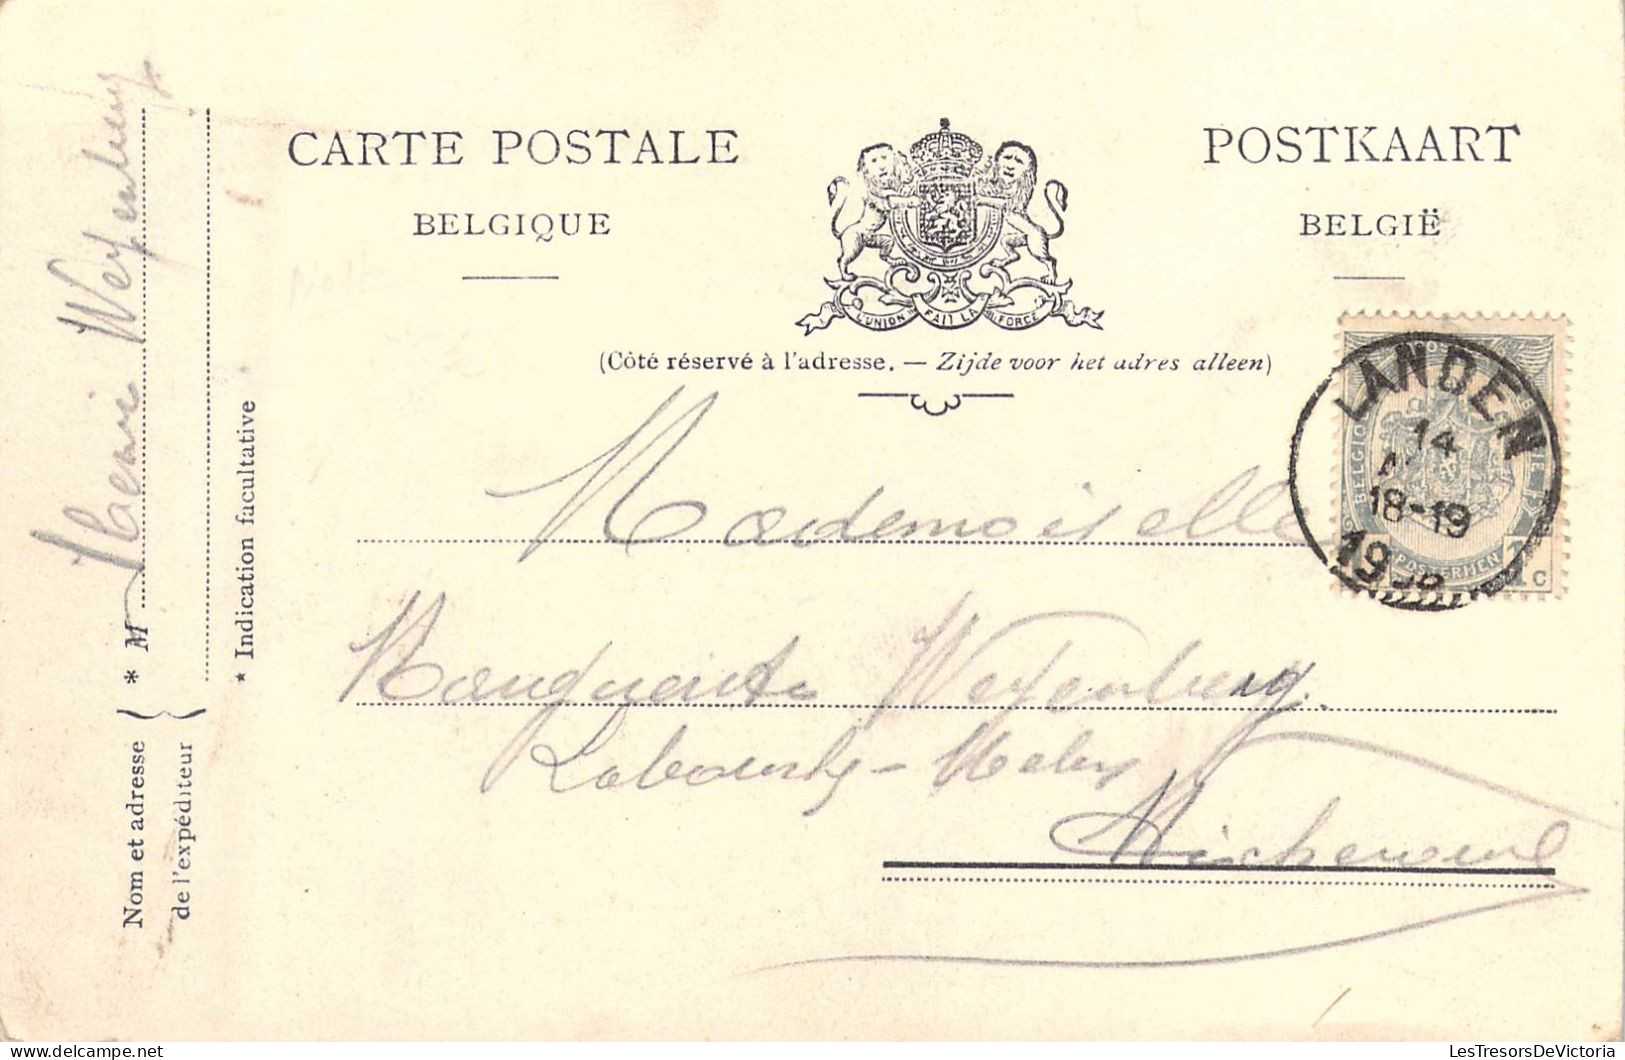 CARTE POSTALE
BELGIQUE
POSTKAART
BELGIË
L'UNION FAIT LA FORCE
(Côté réservé à l'adresse. — Zijde voor het adres alleen)
LANDEN
14
18-19
BELGIQUE
POSTERIJEN
1 C
Mademoiselle
Weyenberg.
* M Henri Weyenberg
* Indication facultative
Nom et adresse
de l'expéditeur
LesTresorsDeVictoria